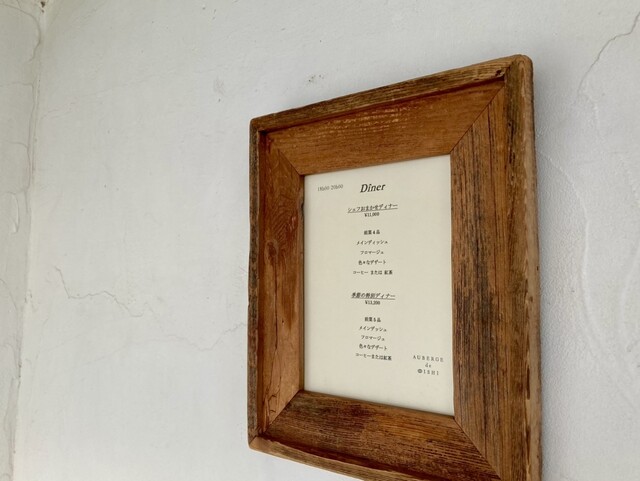 Dîner
シェフおまかせディナー
¥11,000
前菜4品
メインディッシュ
フロマージュ
色々なデザート
コーヒー または 紅茶
季節の特別ディナー
前菜5品
メインディッシュ
フロマージュ
色々なデザート
コーヒーまたは紅茶
AUBERGE
de
OISHI